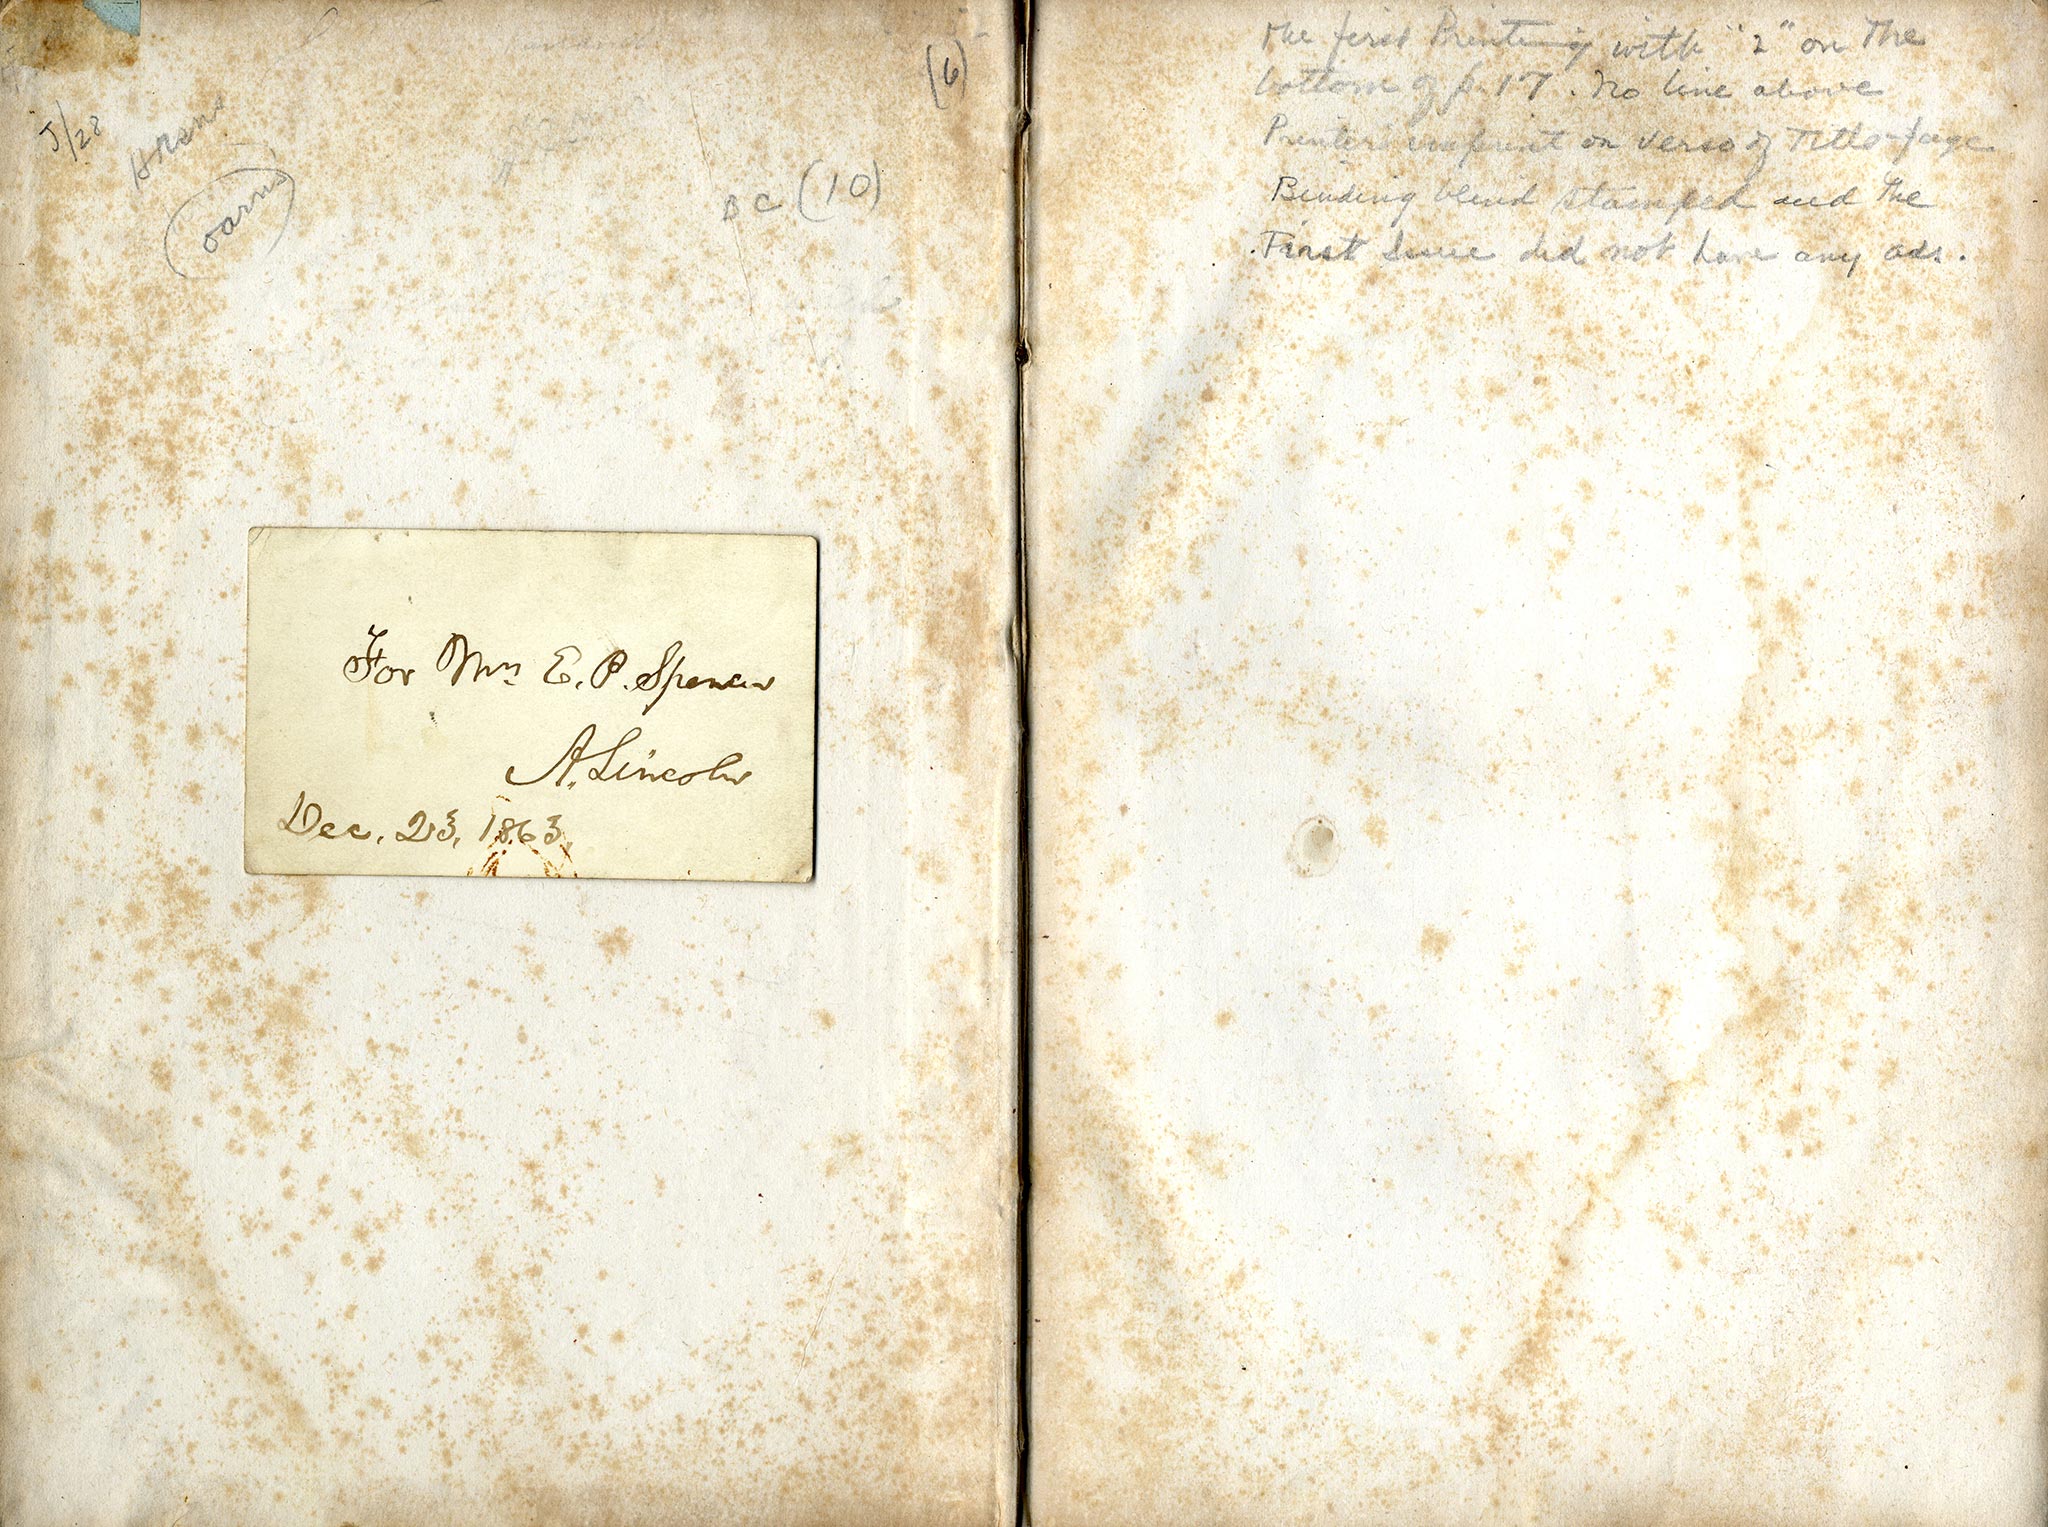 (6)
J/28
(oarns)
BC (10)
For Mrs E. P. Spencer
A. Lincoln
Dec. 23, 1863.
The first Printing with "2" on the
bottom of p. 17. No line above
Printer's imprint on verso of Title-page
Binding blind stamped and the
First Issue did not have any ads.